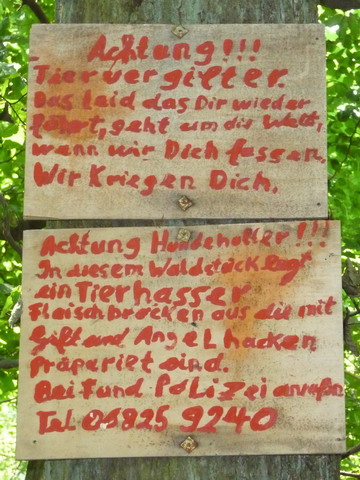 Achtung!!!
Tiervergifter.
Das Leid das Dir wieder
fährt, geht um die Welt,
wenn wir Dich fassen.
Wir Kriegen Dich.
Achtung Hundehalter!!!
In diesem Waldstück legt
ein Tierhasser
Fleischbrocken aus die mit
Gift und Angel hacken
Präpariet sind.
Bei Fund Polizei anrufen
Tel. 04825 9240